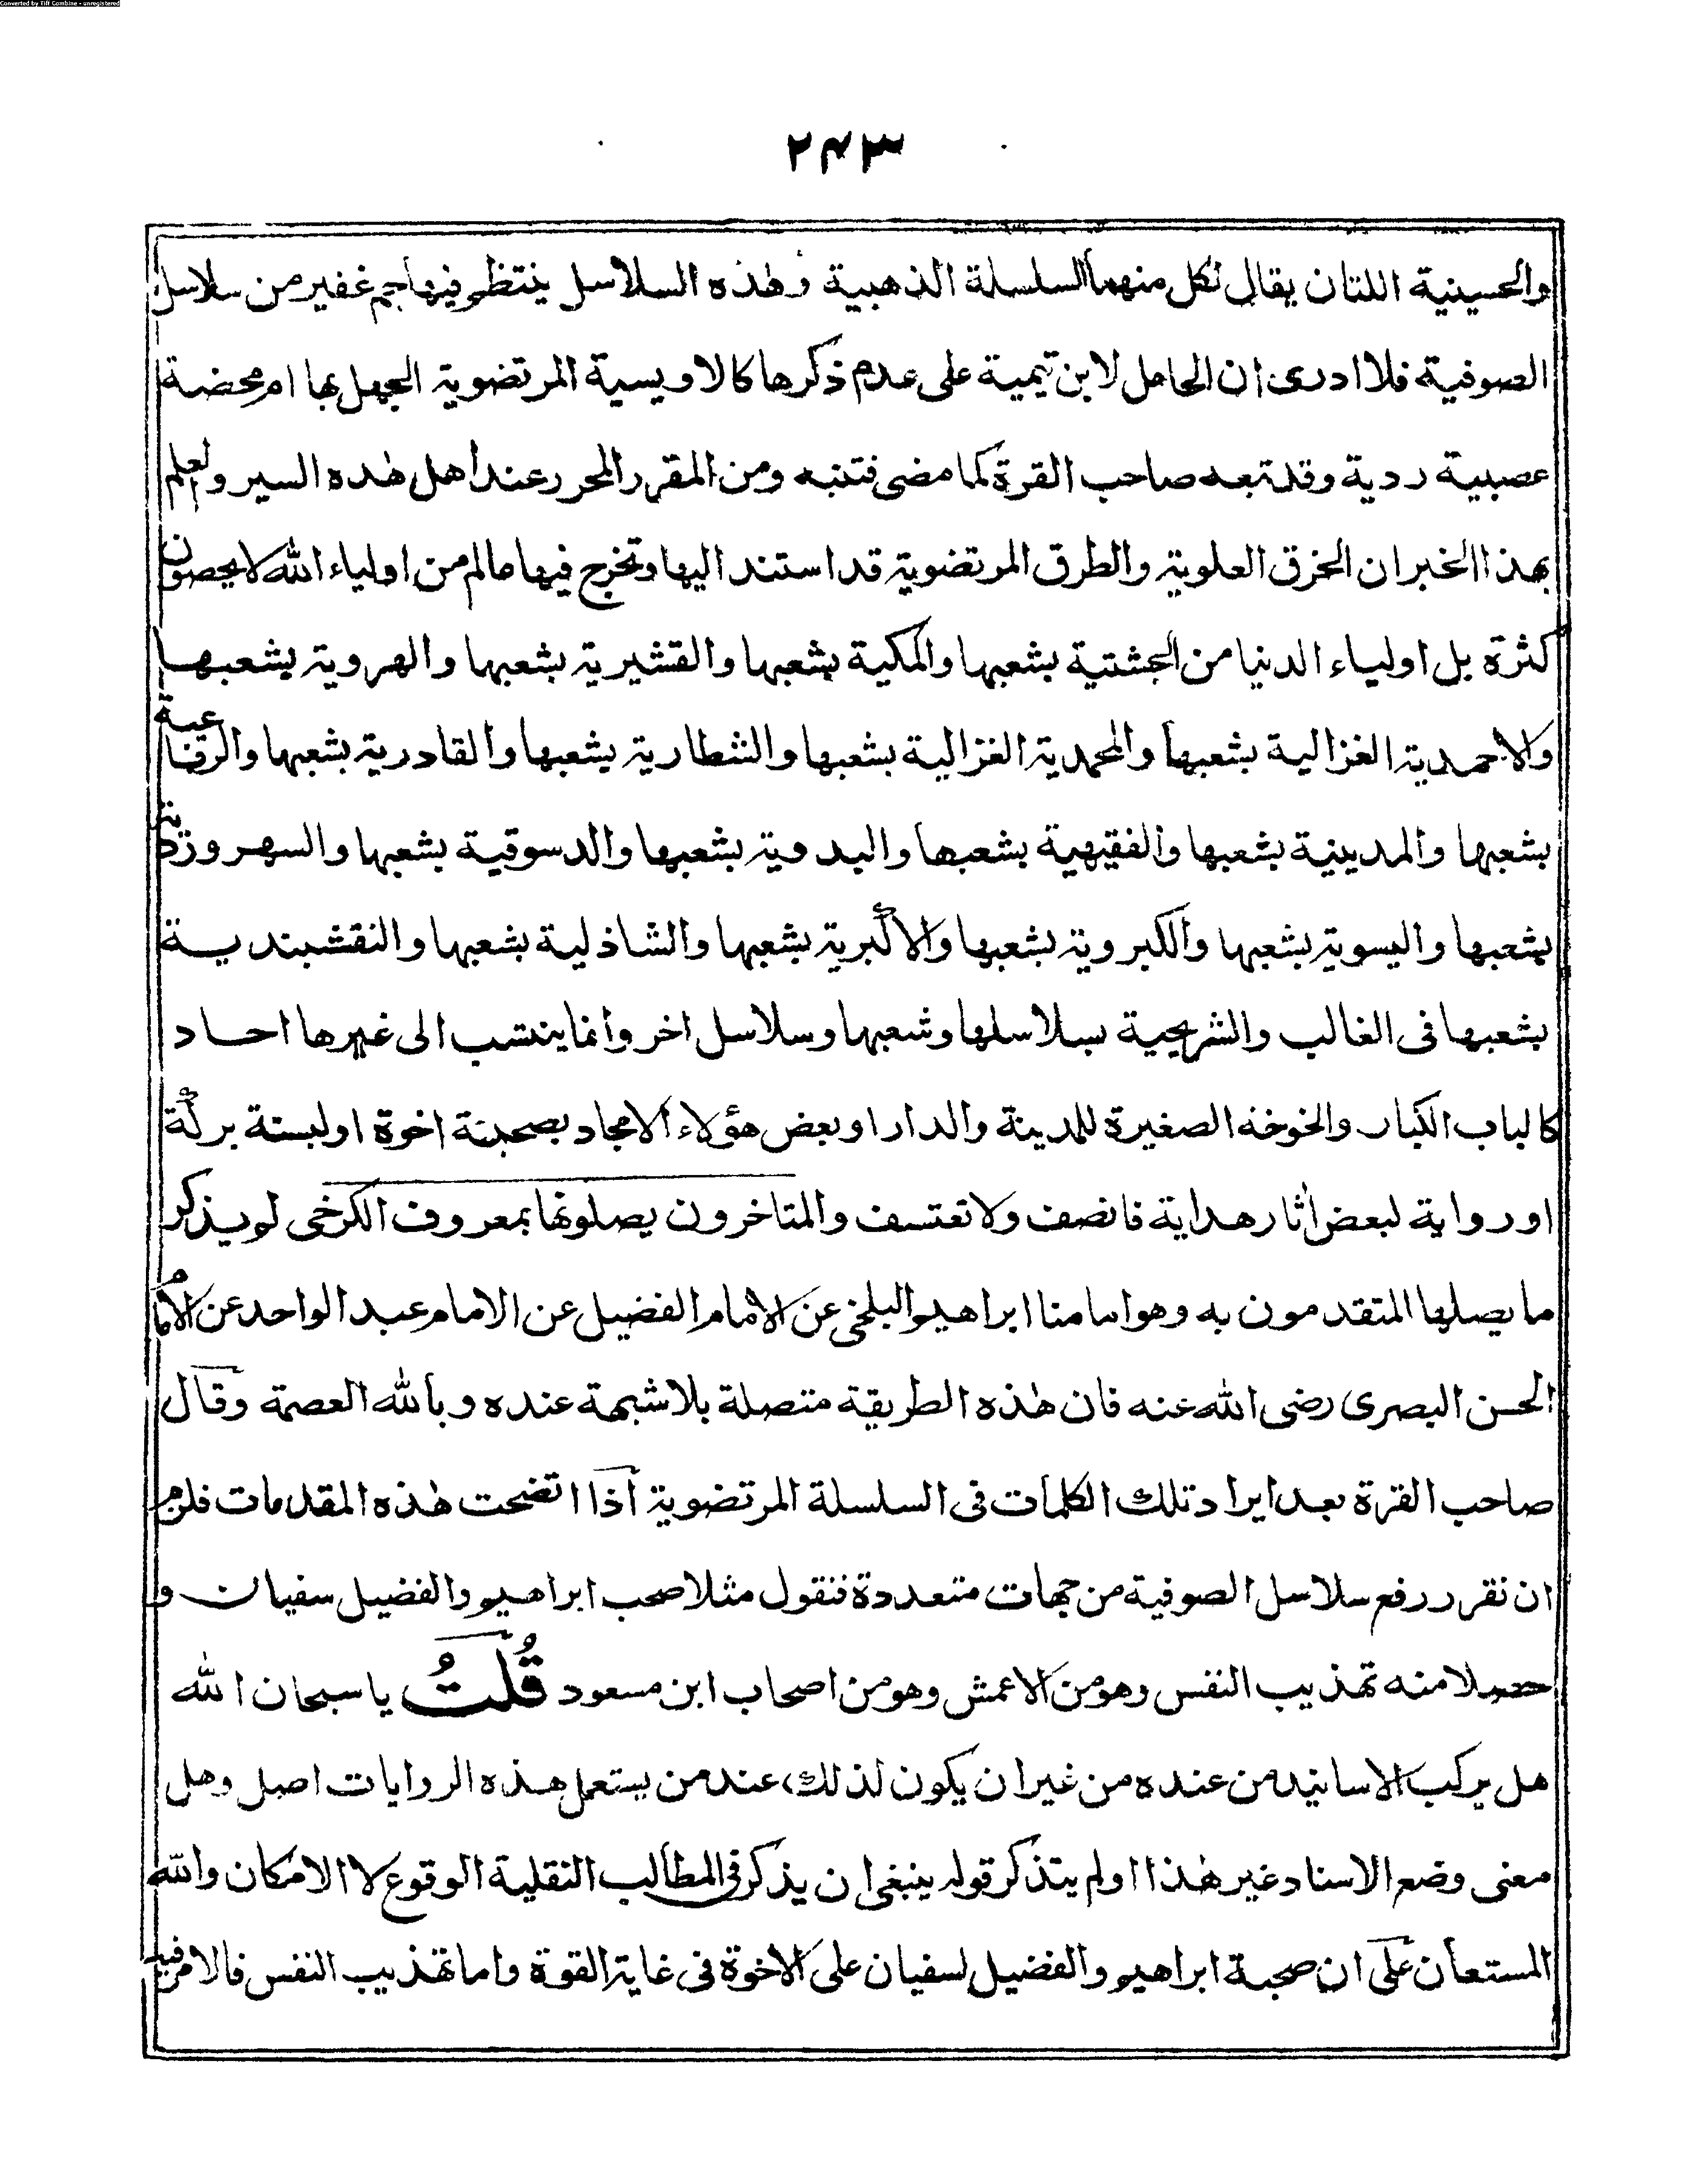 Converted by Tiff Combine - unregistered
٢٤٣
والحسينية اللتان يقال لكل منهما السلسلة الذهبية وهذه السلاسل ينتظم فيها جم غفير من سلاسل
الصوفية فلا ادرى ان الحامل لابن تيمية على عدم ذكرها كالاويسية المرتضوية الجهل بها ام محضة
عصبية ردية وقد تبعه صاحب القرة كما مضى فتنبه ومن المقرر المحرر عند أهل هذه السير والعلم
بهذا الخبر ان الخرق العلوية والطرق المرتضوية قد استند اليها وتخرج فيها مالم من اولياء الله لا يحصون
كثرة بل اولياء الدنيا من الجشتية بشعبها والمكية بشعبها والقشيرية بشعبها والهروية بشعبها
والاحمدية الغزالية بشعبها والمحمدية الغزالية بشعبها والشطارية بشعبها والقادرية بشعبها والرفاعية
بشعبها والمدينية بشعبها والفقيهية بشعبها والبدوية بشعبها والدسوقية بشعبها والسهروردية
بشعبها واليسوية بشعبها والكبروية بشعبها والاكبرية بشعبها والشاذلية بشعبها والنقشبندية
بشعبها فى الغالب والشريحية بسلاسلها وشعبها وسلاسل اخر وانما ينتسب الى غيرها احاد
كالباب الكبار والخوخة الصغيرة للمدينة والدار او بعض هؤلاء الامجاد بصحبة اخوة اولبسة بركة
او رواية لبعض اثار هداية فانصف ولا تعتسف والمتاخرون يصلونها بمعروف الكرخى لم يذكر
ما يصلها المتقدمون به وهو امامنا ابراهيم البلخى عن الامام الفضيل عن الامام عبد الواحد عن الامام
الحسن البصرى رضى الله عنه فان هذه الطريقة متصلة بلا شبهة عنده وبالله العصمة وقال
صاحب القرة بعد ايراد تلك الكلمات فى السلسلة المرتضوية اذا اتضحت هذه المقدمات فلزم
ان نقرر رفع سلاسل الصوفية من جهات متعددة فنقول مثلا صحب ابراهيم والفضيل سفيان و
حصلا منه تهذيب النفس وهو من الاعمش وهو من اصحاب ابن مسعود قُلتُ يا سبحان الله
هل يركب الاسانيد من عنده من غير ان يكون لذلك عند من يستعمل هذه الروايات اصل وهل
معنى وضع الاسناد غير هذا اولم يتذكر قوله ينبغى ان يذكر فى المطالب النقلية الوقوع لا الامكان والله
المستعان على ان صحبة ابراهيم والفضيل لسفيان على الاخوة فى غاية القوة واما تهذيب النفس فالامر فيه